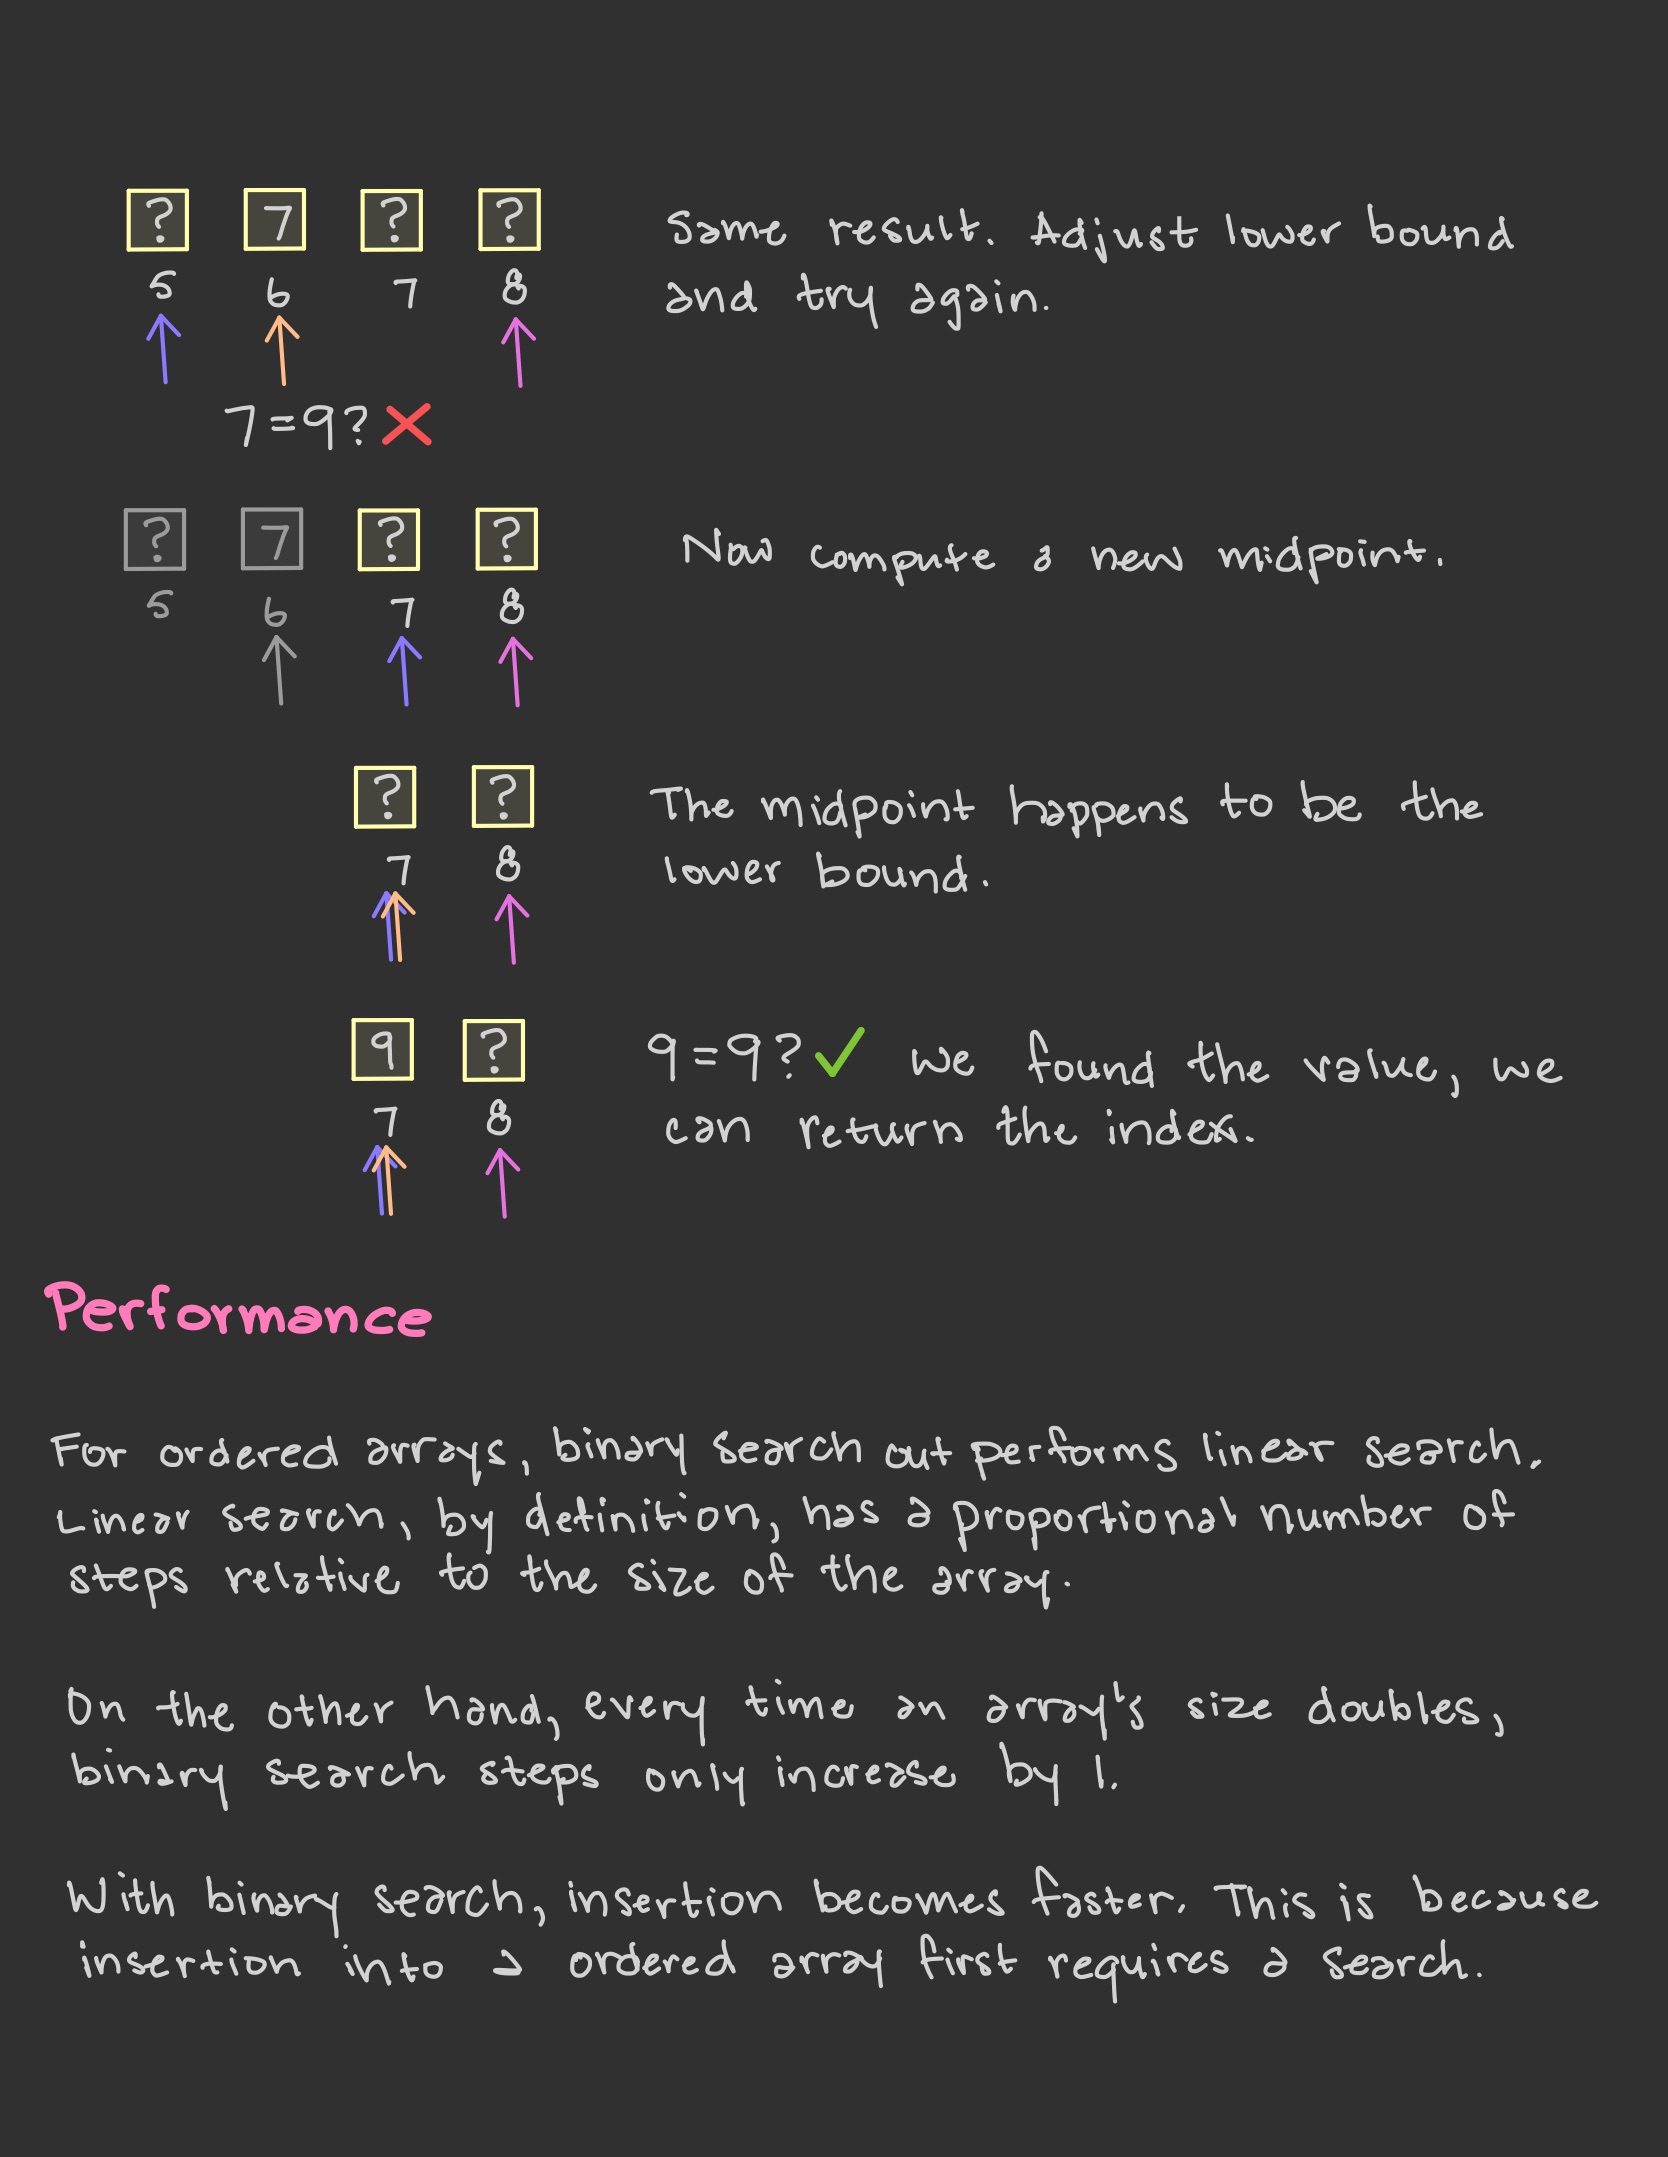 ? 7 ? ?
Same result. Adjust lower bound
5 6 7 8
and try again.
7=9?
? 7 ? ?
Now compute a new midpoint.
5 6 7 8
? ?
The midpoint happens to be the
7 8
lower bound.
9 ?
9=9? We found the value, we
7 8
can return the index.
Performance
For ordered arrays, binary search out performs linear search.
Linear search, by definition, has a proportional number of
steps relative to the size of the array.
On the other hand, every time an array's size doubles,
binary search steps only increase by 1.
With binary search, insertion becomes faster. This is because
insertion into a ordered array first requires a search.